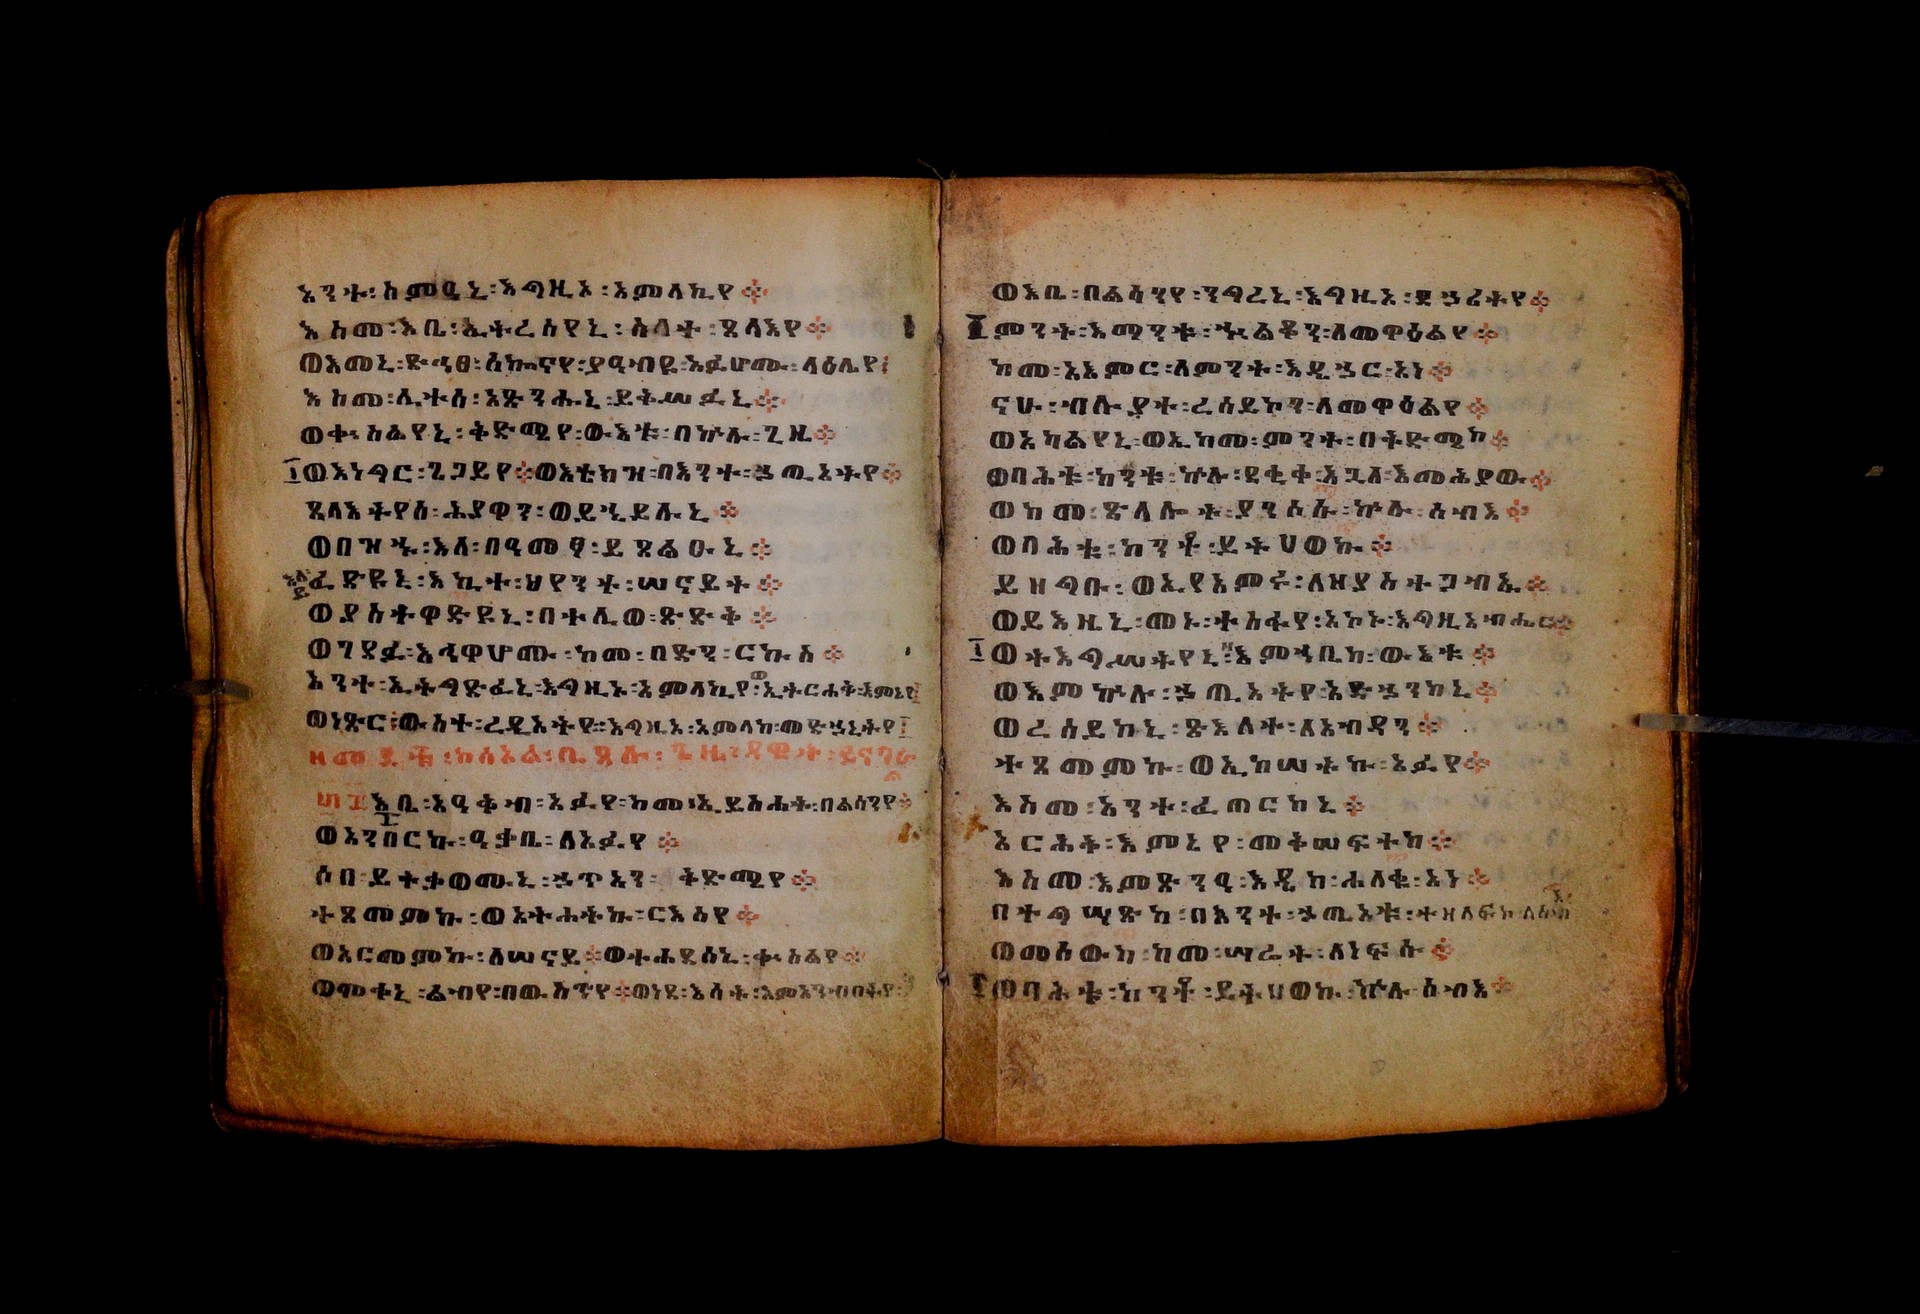 አንተ፡ስምዐኒ፡እግዚኦ፡አምላኪየ፨
እስመ፡እቤ፡ኢትረስየኒ፡ስላተ፡ጸላእየ፨
ወእመኒ፡ድኅፀ፡ሰኰናየ፡ያዐብዩ፡አፉሆሙ፡ላዕሌየ፡
እስመ፡ሊተሰ፡አጽንሑኒ፡ይቅሥፉኒ፨
ወቍስልየኒ፡ቅድሜየ፡ውእቱ፡በኵሉ፡ጊዜ፨
፲ወእነግር፡ጌጋይየ፨ወእቴክዝ፡በእንተ፡ኃጢአትየ፨
ጸላእትየሰ፡ሕያዋን፡ወይኄይሉኒ፨
ወበዝኁ፡እለ፡በዓመፃ፡ይጸልዑኒ፨
ፈድዩኒ፡እኪተ፡ህየንተ፡ሠናይት፨
ወያስተዋድዩኒ፡በተሊወ፡ጽድቅ፨
ወገደፉ፡እኅዋሆሙ፡ከመ፡በድን፡ርኩስ፨
አንተ፡ኢትግድፈኒ፡እግዚኦ፡አምላኪየ፡ወኢትርሐቅ፡እምኔየ
ወነጽር፡ውስተ፡ረዲኦትየ፡እግዚኦ፡አምላከ፡መድኃኒትየ፲
ጊዜ፡ዳዊት፡
እቤ፡አዓቅብ፡አፉየ፡ከመ፡ኢይስሐት፡በልሳንየ፨
ወአንበርኩ፡ዓቃቤ፡ለአፉየ፨
ሶበ፡ይትቃወሙኒ፡ኃጥኣን፡ቅድሜየ፨
ተጸመምኩ፡ወአትሐትኩ፡ርእስየ፨
ወአርመምኩ፡ለሠናይ፨ወተሐደሰኒ፡ቍስልየ፨
ወሞቀኒ፡ልብየ፡በውስጥየ፨ወነደ፡እሳት፡እምአንብቦትየ፨
ወእቤ፡በልሳንየ፡ንግረኒ፡እግዚኦ፡ደኃሪትየ፨
ምንት፡እማንቱ፡ኍልቆን፡ለመዋዕልየ፨
ከመ፡አእምር፡ለምንት፡እዴኃር፡አነ፨
ናሁ፡ብሉያተ፡ረሰይኮን፡ለመዋዕልየ፨
ወአካልየኒ፡ወኢከመ፡ምንት፡በቅድሜከ፨
ወባሕቱ፡ከንቱ፡ኵሉ፡ደቂቀ፡እጓለ፡እመሕያው፨
ወከመ፡ጽላሎት፡ያንሶሱ፡ኵሉ፡ሰብእ፨
ወባሕቱ፡ከንቶ፡ይትሀወኩ፨
ይዘግቡ፡ወኢየአምሩ፡ለዘያስተጋብኡ፨
ወይእዜኒ፡መኑ፡ተስፋየ፡አኮኑ፡እግዚአብሔር፨
፲ወትእግሥትየኒ፡እምኀቤከ፡ውእቱ፨
ወእምኵሉ፡ኃጢአትየ፡አድኅነከኒ፨
ወረሰይከኒ፡ጽእለተ፡ለአብዳን፨
ተጸመምኩ፡ወኢከሠትኩ፡አፉየ፨
እስመ፡አንተ፡ፈጠርከኒ፨
አርሕቅ፡እምኔየ፡መቅሠፍተከ፨
እስመ፡እምጽንዐ፡እዴከ፡ሐለቁ፡አነ፨
በተግሣጽከ፡በእንተ፡ኃጢአቱ፡ተዘለፍኮ፡ለሰብእ
ወመሰውካ፡ከመ፡ሣሬት፡ለነፍሱ፨
ወባሕቱ፡ከንቶ፡ይትሀወኩ፡ኵሉ፡ሰብእ፨